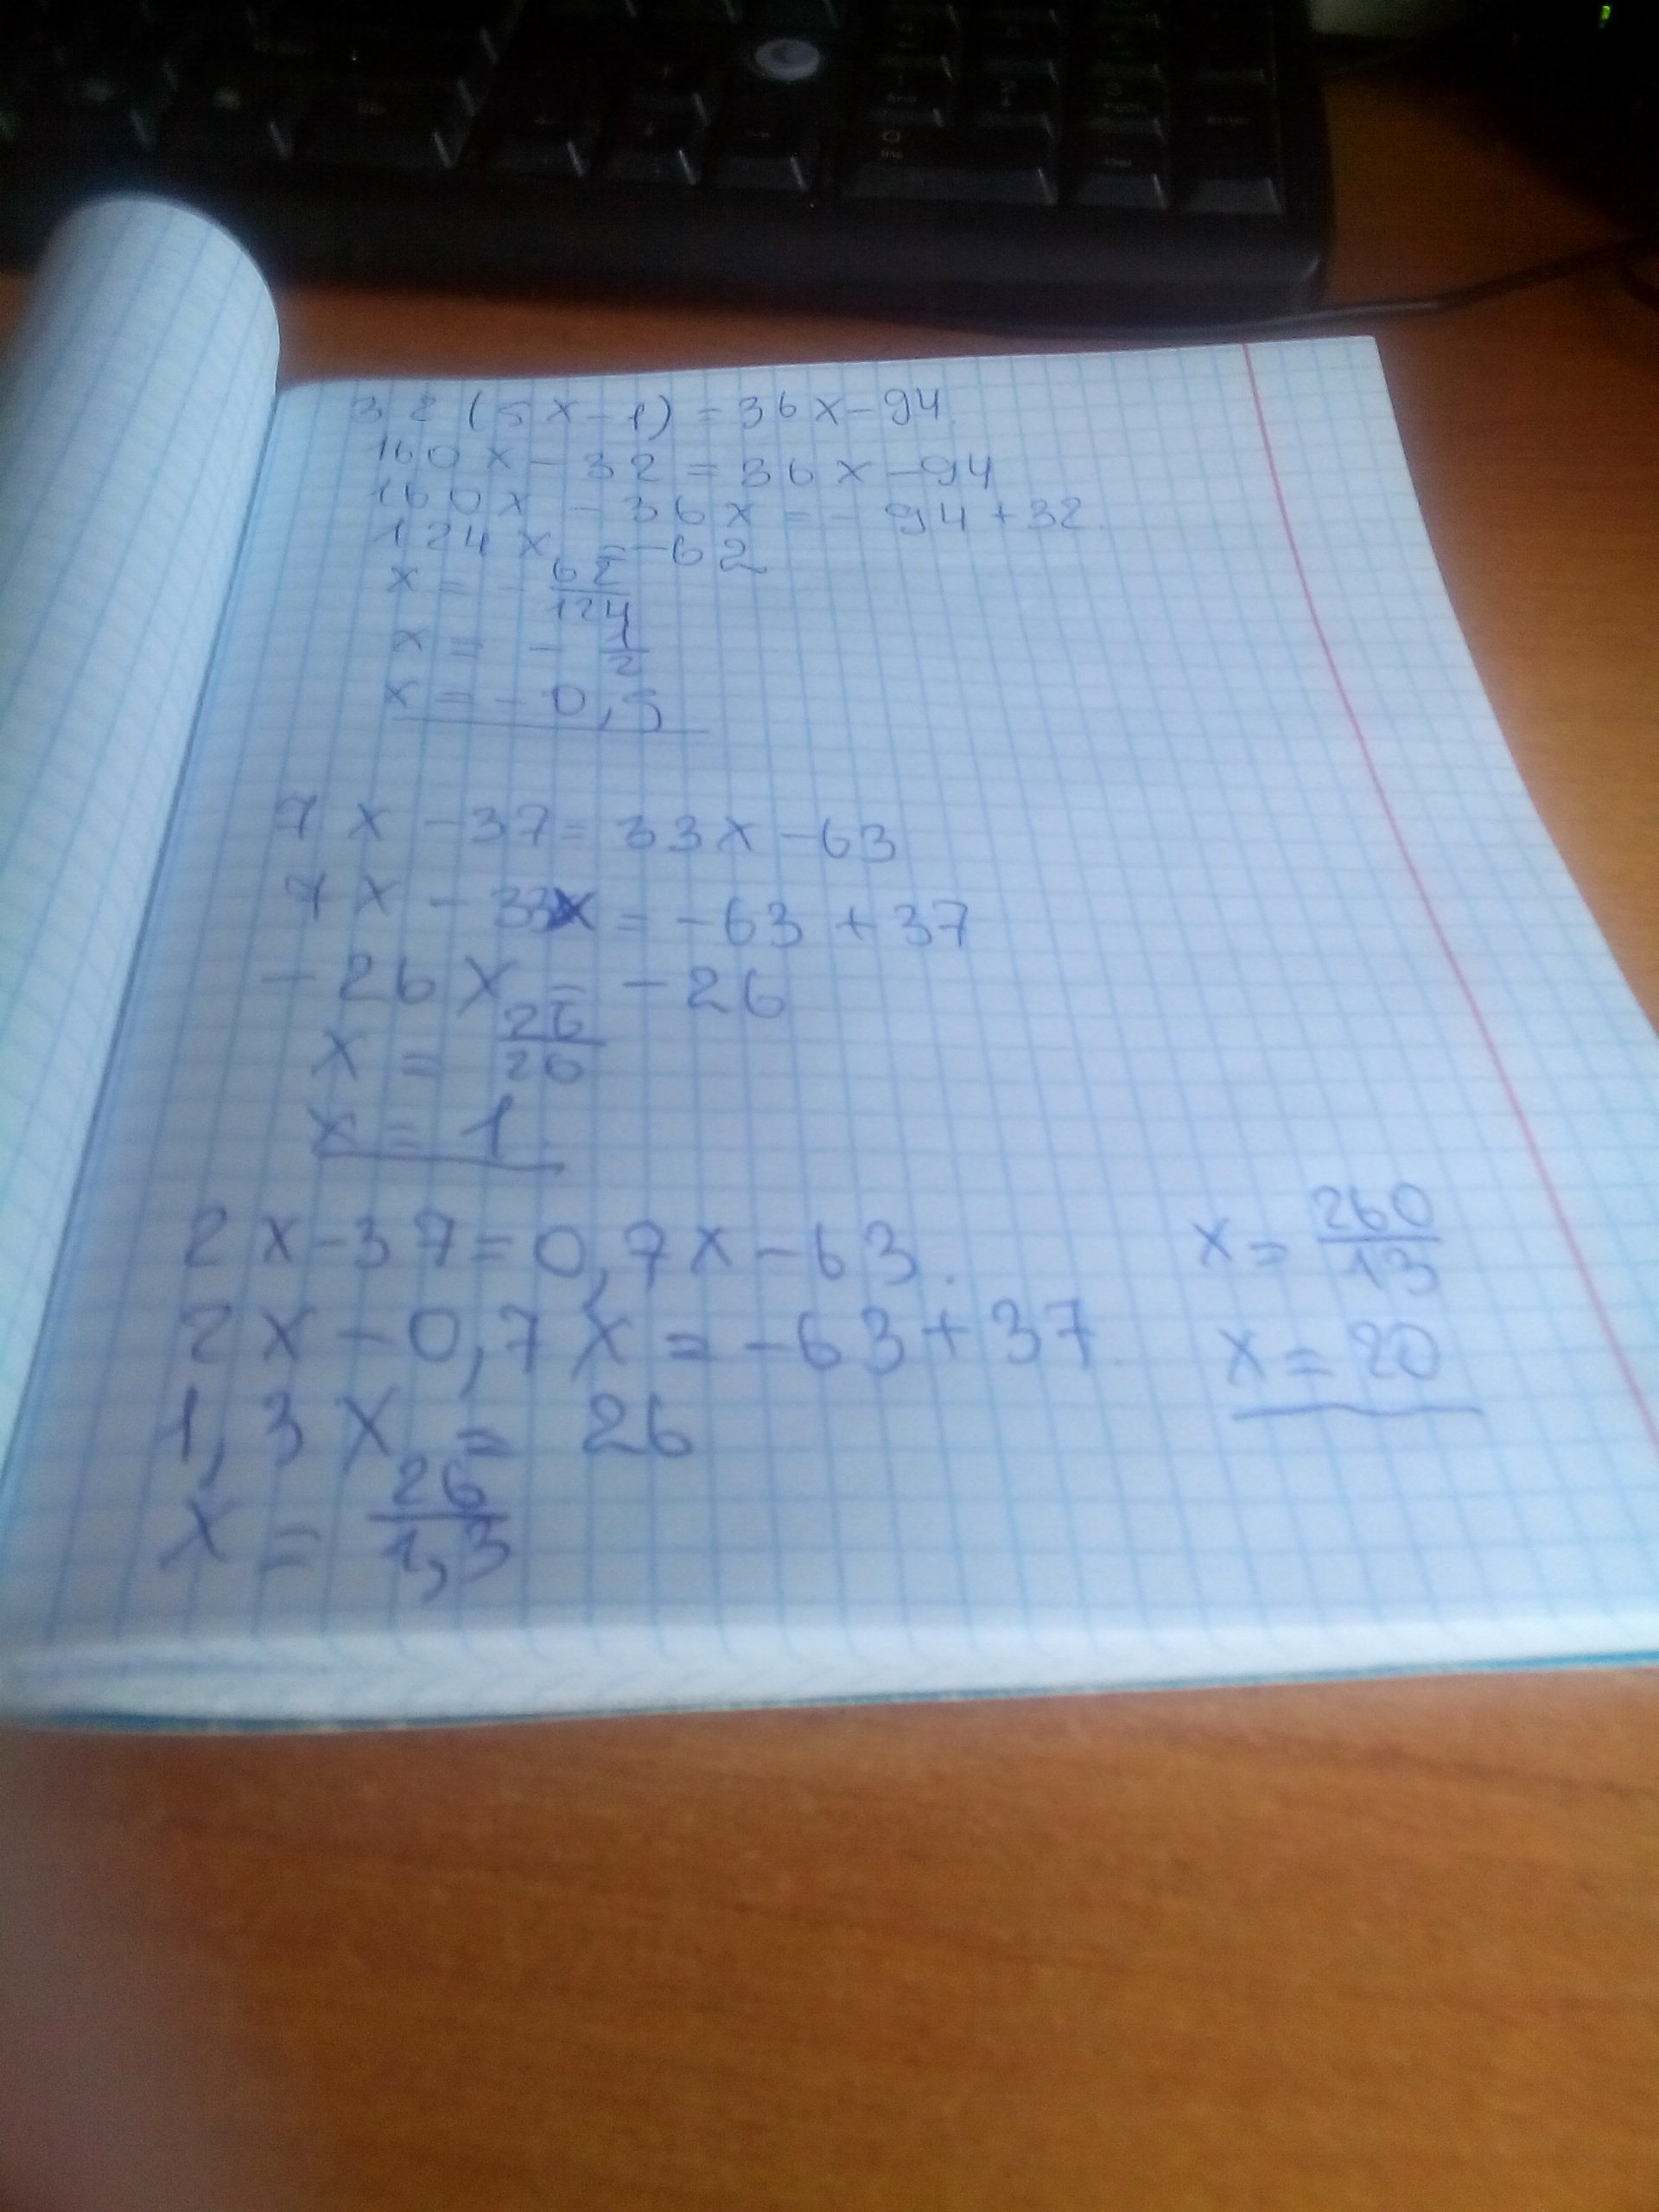 32(5x-1)=36x-94.
160x-32=36x-94
160x-36x=-94+32.
124x=-62
x=-62/124
x=-1/2
x=-0,5
7x-37=33x-63
7x-33x=-63+37
-26x=-26
x=26/26
x=1.
2x-37=0,7x-63.
2x-0,7x=-63+37.
1,3x=26
x=26/1,3
x=260/13
x=20